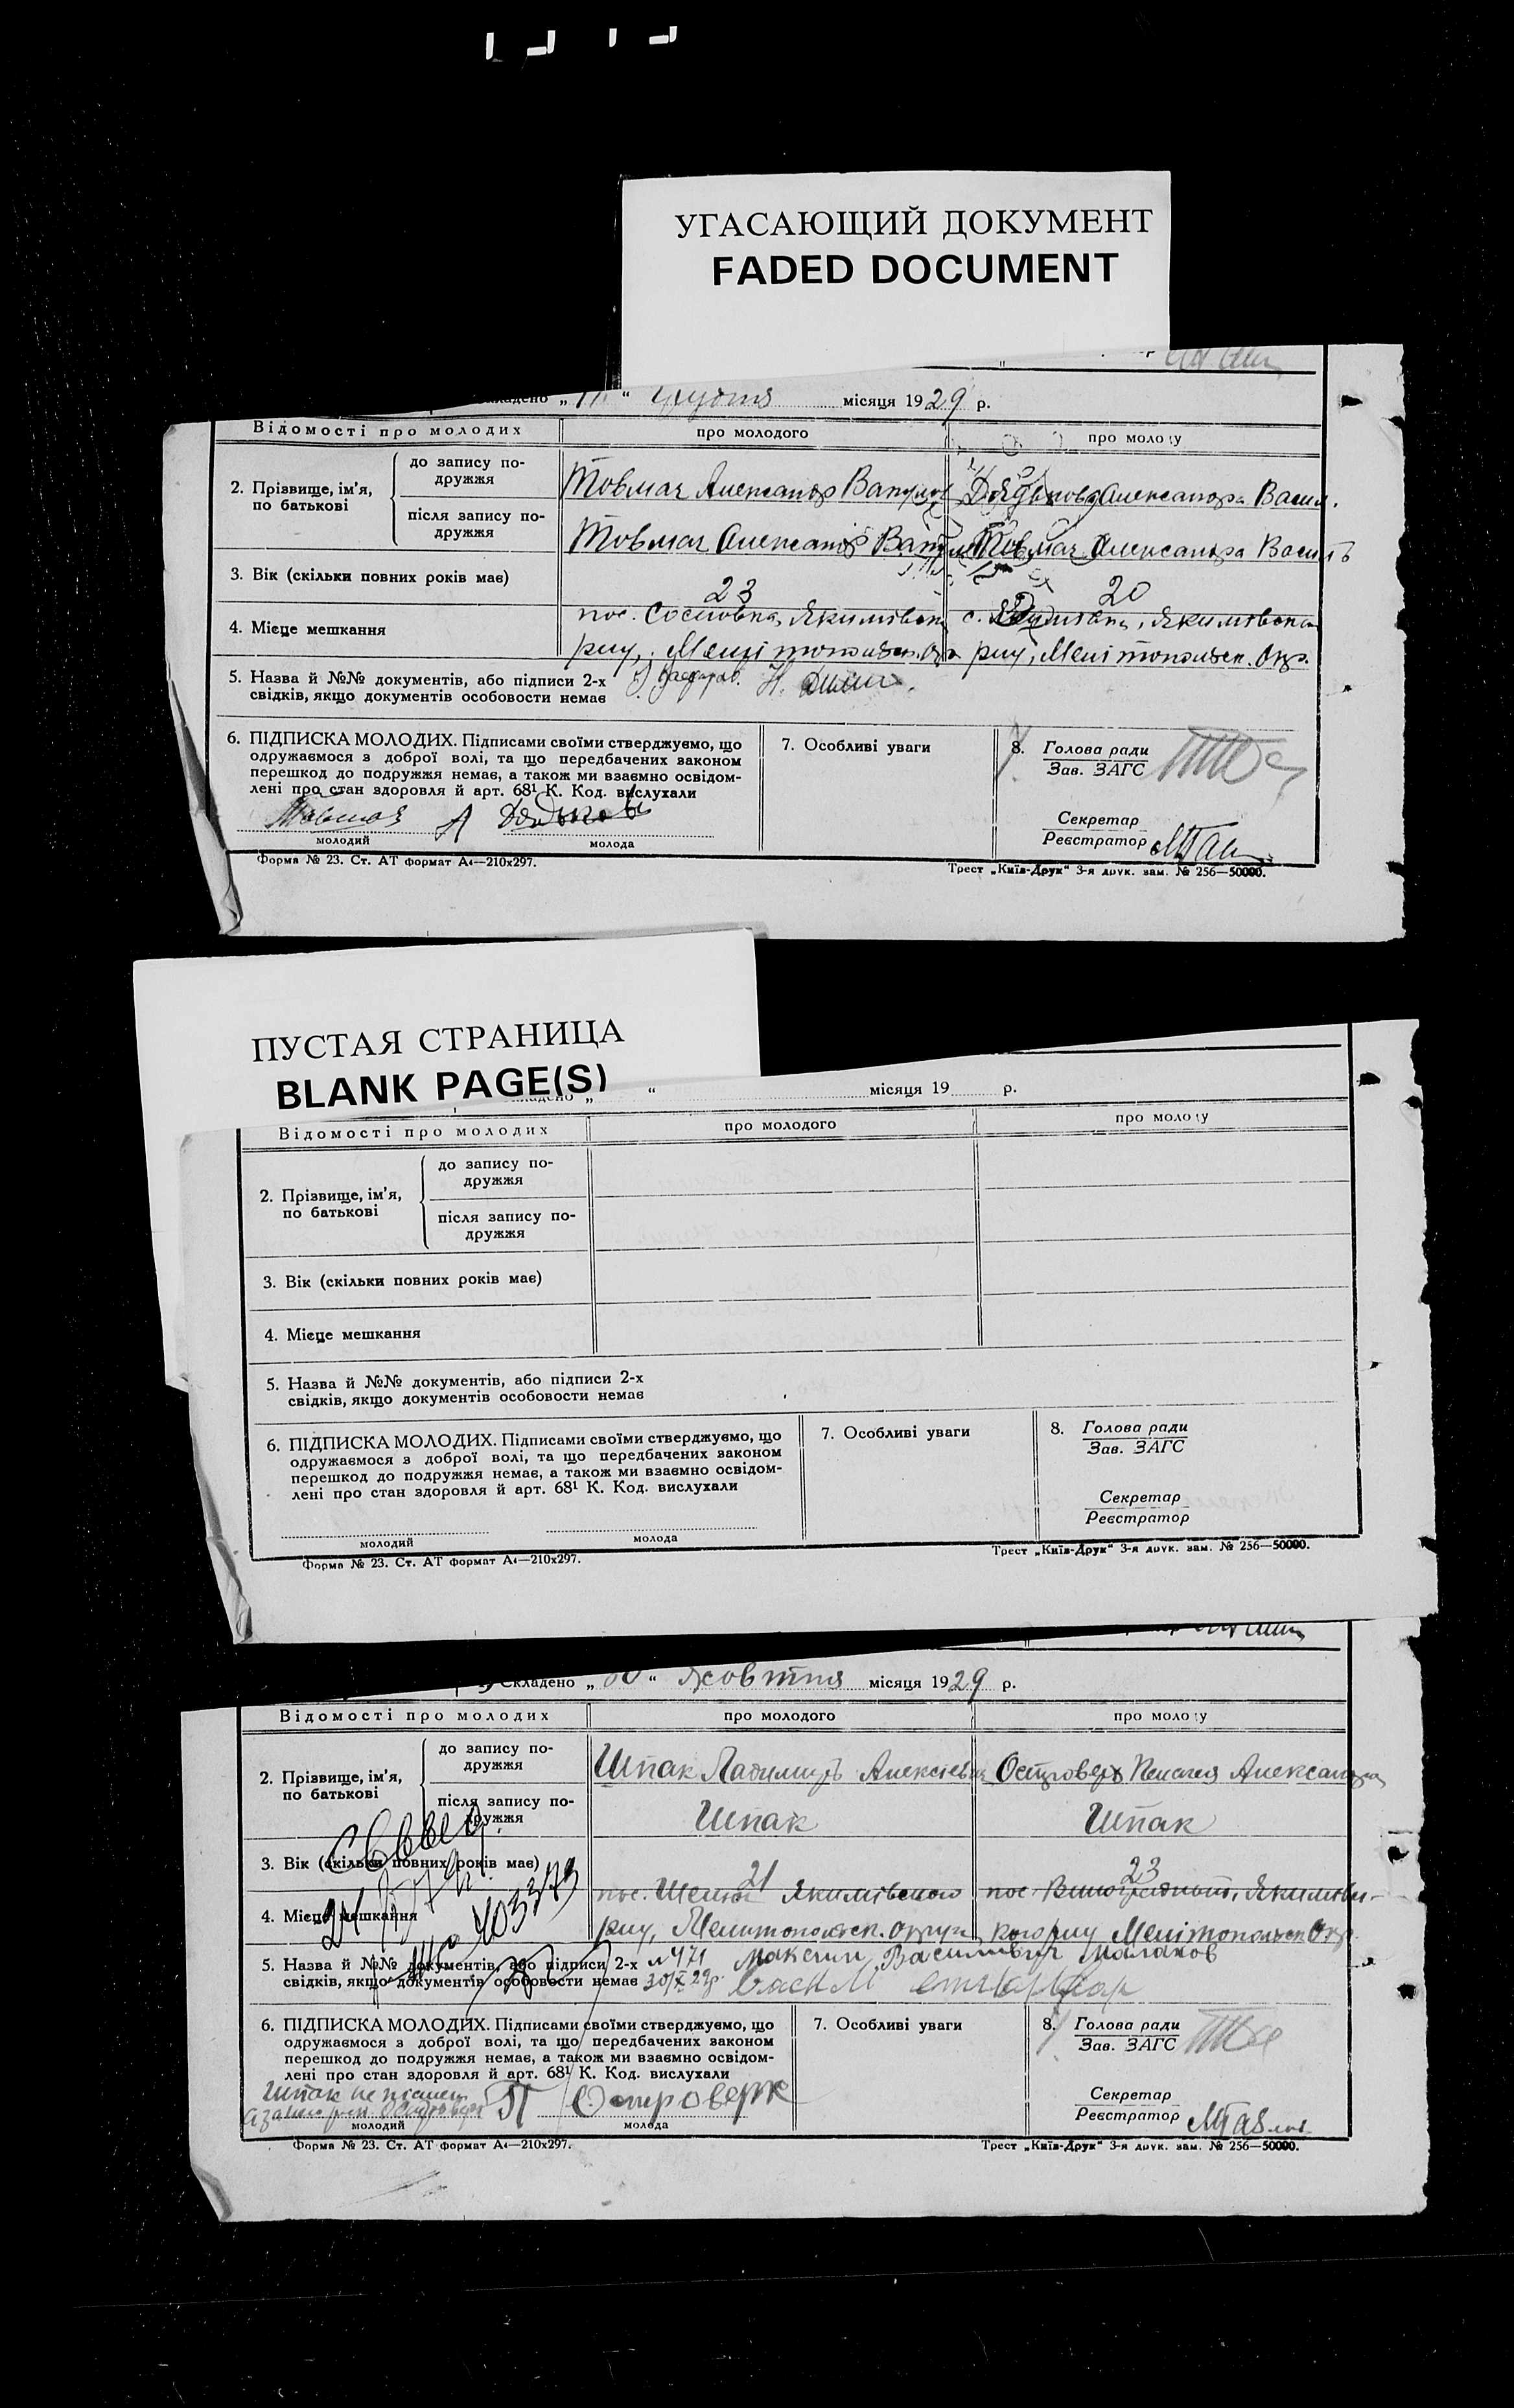 УГАСАЮЩИЙ ДОКУМЕНТ
FADED DOCUMENT
„ “ грудня місяця 1929 р.
Відомості про молодих
про молодого
про молоду
2. Прізвище, ім'я, по батькові
до запису подружжя
Товмач Александр
Дядькова Александра Васил.
після запису подружжя
Товмач Александр
Товмач Александра Василь
3. Вік (скільки повних років має)
23
20
4. Місце мешкання
пос. Сосновка, Якимівськ
с. Якимівськ
рну, Мелітопольск. Окр
рну, Мелітопольск. Окр.
5. Назва й №№ документів, або підписи 2-х
свідків, якщо документів особовости немає
6. ПІДПИСКА МОЛОДИХ. Підписами своїми стверджуємо, що
одружаємося з доброї волі, та що передбачених законом
перешкод до подружжя немає, а також ми взаємно освідом-
лені про стан здоровля й арт. 68¹ К. Код. вислухали
Товмач А Дядькова
молодий
молода
7. Особливі уваги
8. Голова ради
Зав. ЗАГС
Секретар
Реєстратор
Форма № 23. Ст. АТ формат А4—210х297.
Трест „Київ-Друк“ 3-я друк. зам. № 256—50000.
ПУСТАЯ СТРАНИЦА
BLANK PAGE(S)
„ “ місяця 19 р.
Відомості про молодих
про молодого
про молоду
2. Прізвище, ім'я, по батькові
до запису подружжя
після запису подружжя
3. Вік (скільки повних років має)
4. Місце мешкання
5. Назва й №№ документів, або підписи 2-х
свідків, якщо документів особовости немає
6. ПІДПИСКА МОЛОДИХ. Підписами своїми стверджуємо, що
одружаємося з доброї волі, та що передбачених законом
перешкод до подружжя немає, а також ми взаємно освідом-
лені про стан здоровля й арт. 68¹ К. Код. вислухали
молодий
молода
7. Особливі уваги
8. Голова ради
Зав. ЗАГС
Секретар
Реєстратор
Форма № 23. Ст. АТ формат А4—210х297.
Трест „Київ-Друк“ 3-я друк. зам. № 256—50000.
Складено „30“ Жовтня місяця 1929 р.
Відомості про молодих
про молодого
про молоду
2. Прізвище, ім'я, по батькові
до запису подружжя
Шпак Алексієвич
Островерх Пелагея Александр
після запису подружжя
Шпак
Шпак
3. Вік (скільки повних років має)
21
23
4. Місце мешкання
пос. Якимівського
пос. Виноградный, Якимівс-
рну, Мелитопольск. округи
кого рну Мелітопольск Окр.
5. Назва й №№ документів, або підписи 2-х
№ 471 Максим Васильевич Малахов
свідків, якщо документів особовости немає
30/X 29р.
6. ПІДПИСКА МОЛОДИХ. Підписами своїми стверджуємо, що
одружаємося з доброї волі, та що передбачених законом
перешкод до подружжя немає, а також ми взаємно освідом-
лені про стан здоровля й арт. 68¹ К. Код. вислухали
Шпак не
П Островерх
молодий
молода
7. Особливі уваги
8. Голова ради
Зав. ЗАГС
Секретар
Реєстратор
Форма № 23. Ст. АТ формат А4—210х297.
Трест „Київ-Друк“ 3-я друк. зам. № 256—50000.